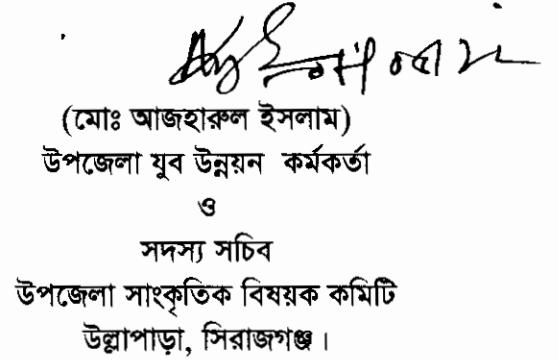 (মোঃ আজহারুল ইসলাম)
উপজেলা যুব উন্নয়ন কর্মকর্তা
ও
সদস্য সচিব
উপজেলা সাংকৃতিক বিষয়ক কমিটি
উল্লাপাড়া, সিরাজগঞ্জ।